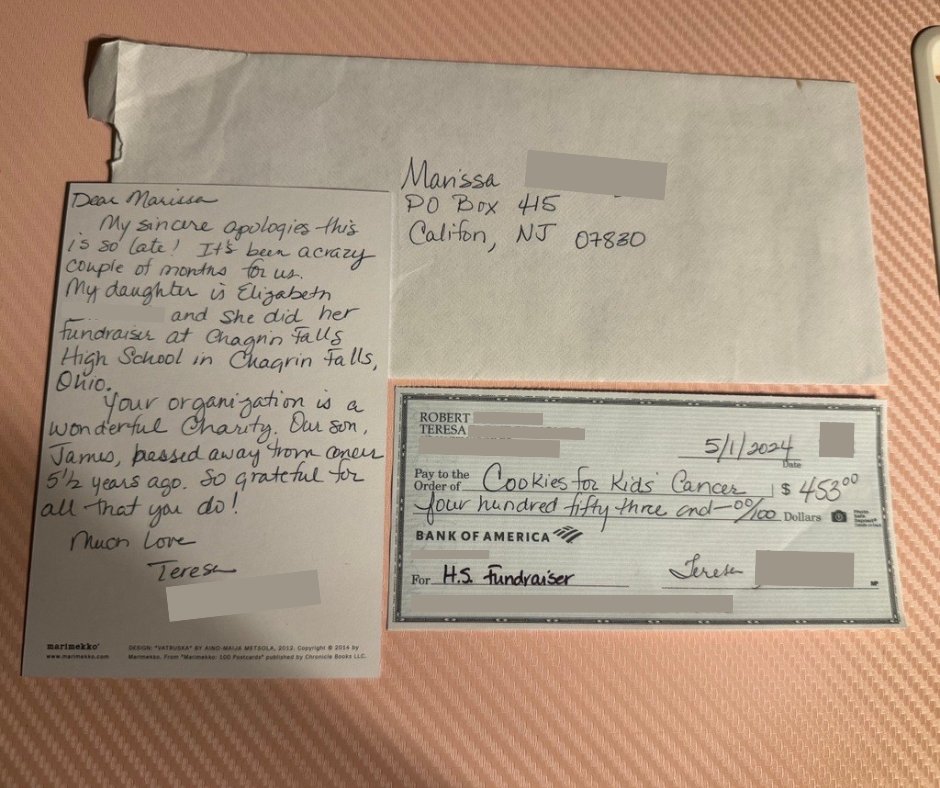 Marissa
PO Box 415
Califon, NJ 07830
Dear Marissa
My sincere apologies this
is so late! It's been a crazy
couple of months for us.
My daughter is Elizabeth
and she did her
fundraiser at Chagrin Falls
High School in Chagrin Falls,
Ohio.
Your organization is a
wonderful Charity. Our son,
James, passed away from cancer
5 1/2 years ago. So grateful for
all that you do!
Much Love
Teresa
marimekko®
www.marimekko.com
DESIGN: "VATRUSKA" BY AINO-MAIJA METSOLA, 2012. Copyright © 2014 by
Marimekko. From "Marimekko: 100 Postcards" published by Chronicle Books LLC.
ROBERT
TERESA
5/1/2024
Date
Pay to the
Order of Cookies for Kids' Cancer $ 453 00
four hundred fifty three and 00/100 Dollars
BANK OF AMERICA
For H.S. Fundraiser Teresa